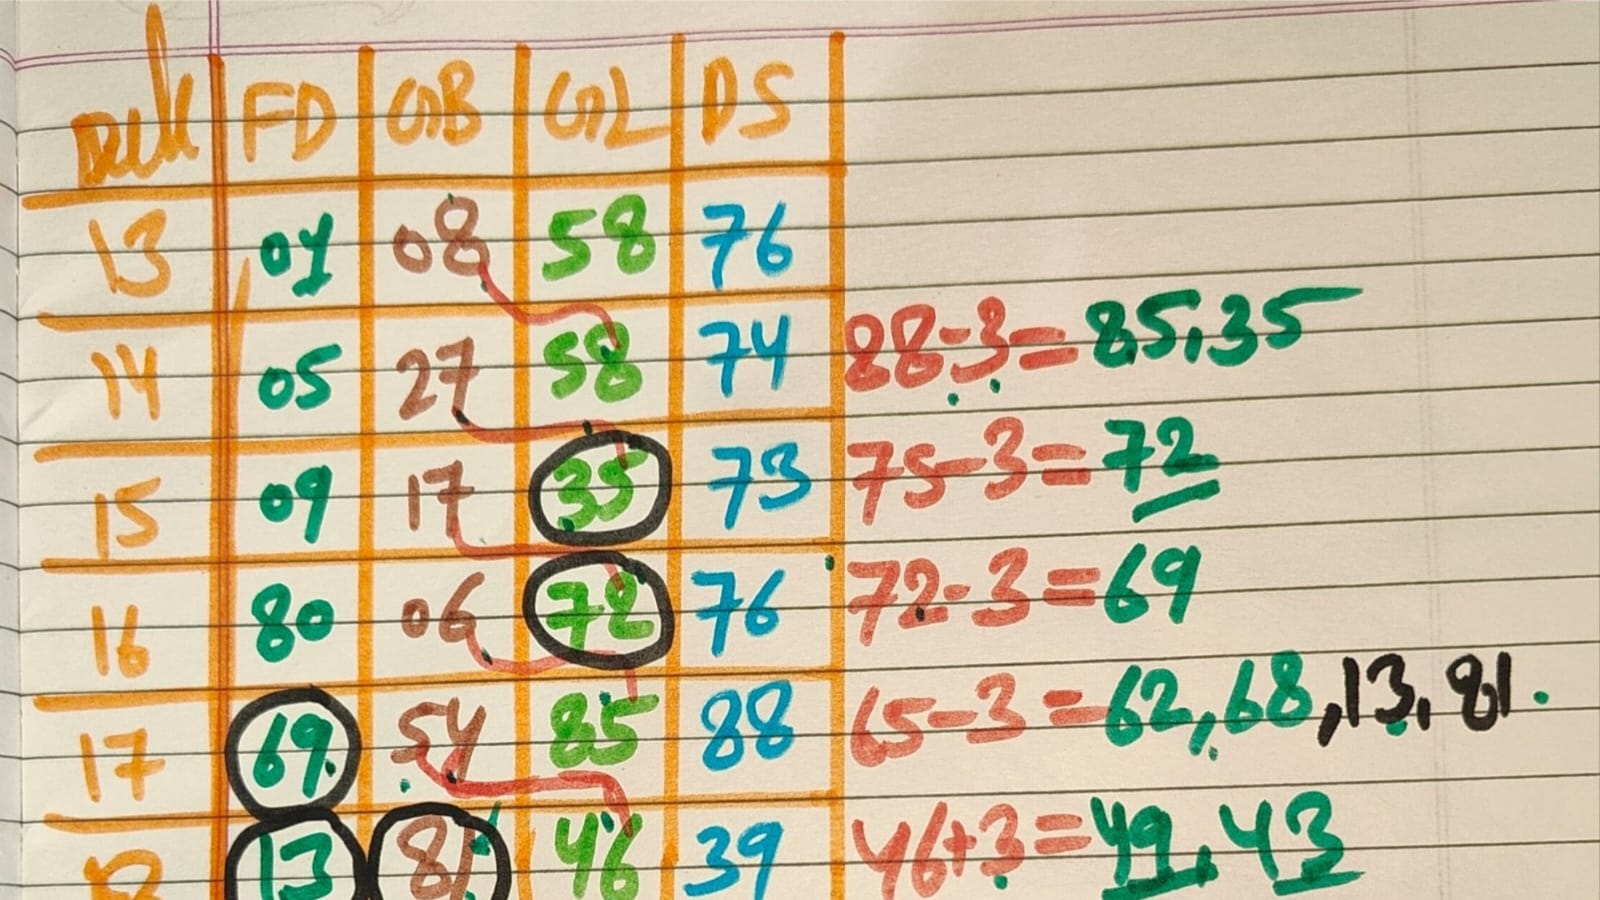 FD GDB GDL DS
13 04 08 58 76
14 05 27 58 74 88-3=85,35
15 09 17 35 73 75-3=72
16 80 06 72 76 72-3=69
17 69 54 85 88 65-3=62,68,13,81.
13 81 46 39 46+3=49,43